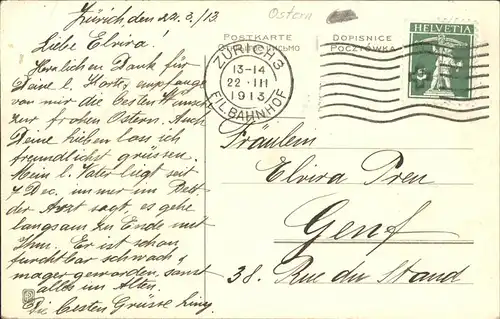 Zürich, den 22.3./13
Liebe Elvira!
Herzlichen Dank für
Deine l. Karte, empfange
von mir die besten Wünsche
zur frohen Ostern. Auch
Deine lieben lass ich
freundlichst grüssen.
Mein l. Vater liegt seit
7 Dec. immer im Bett
der Arzt sagt, es gehe
langsam zu Ende mit
Ihm. Er ist schon
furchtbar schwach &
mager geworden, sonst
alles im Alten.
Die besten Grüsse
Ostern
POSTKARTE
DOPISNICE
POCZTÓWKA
ZÜRICH 3
13-14
22·III
1913
FIL.BAHNHOF
HELVETIA
5
Fräulein
Elvira
Genf
38. Rue du Stand